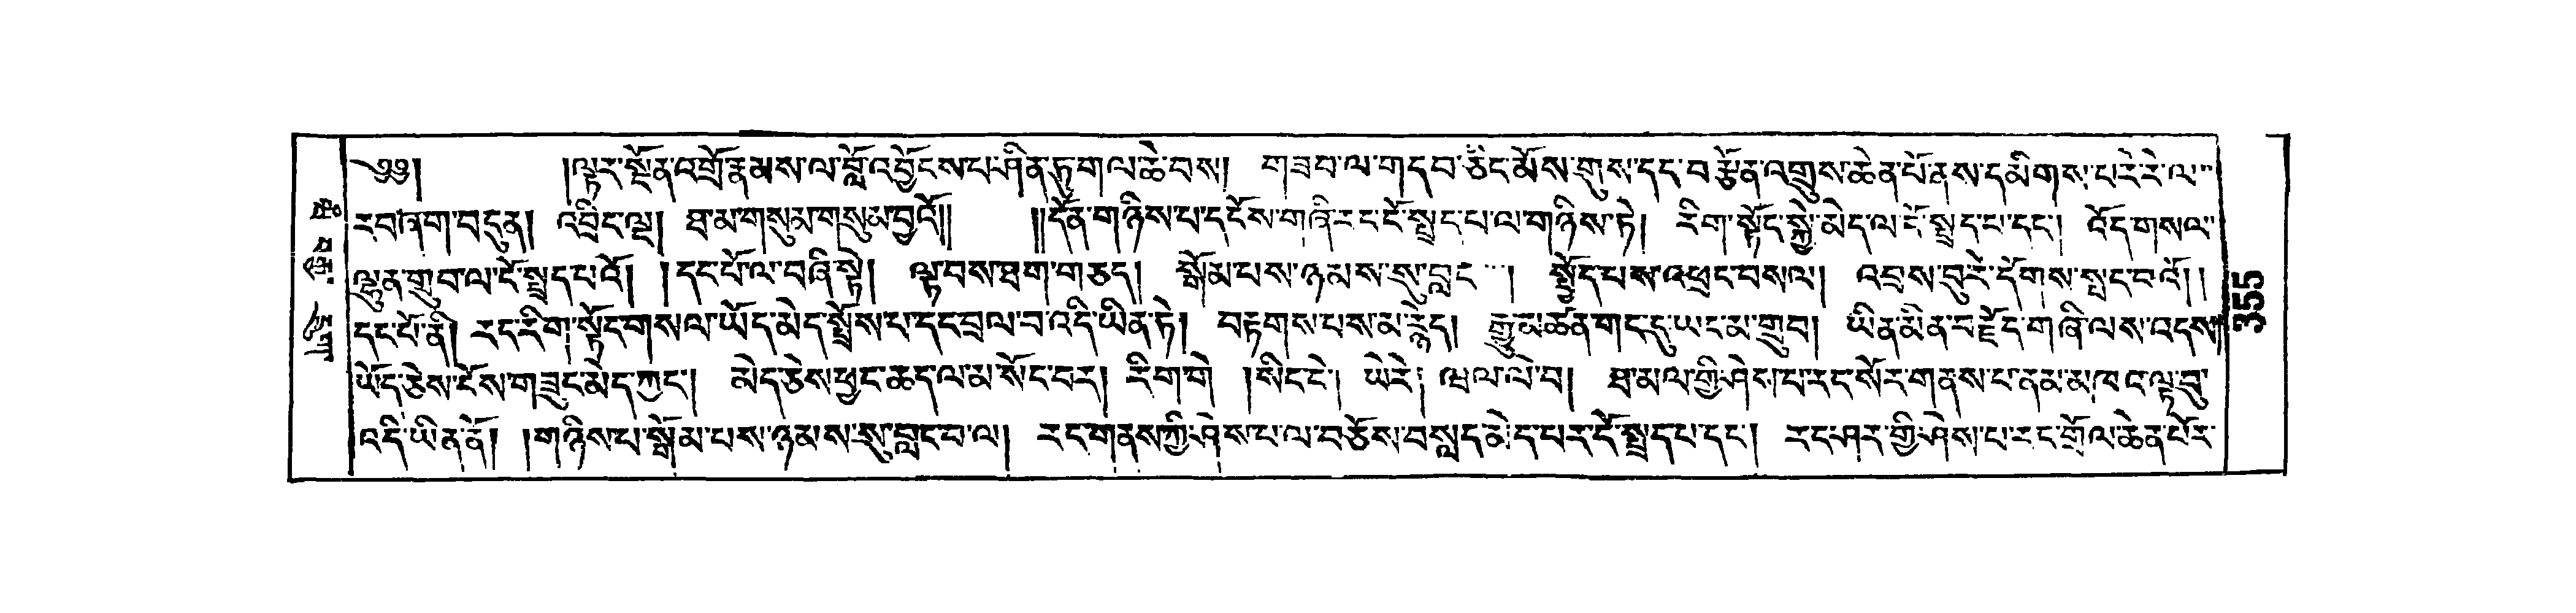 ༄༅། །ལྟར་སྔོན་འགྲོ་རྣམས་ལ་བློ་འབྱོངས་པ་ཤིན་ཏུ་གལ་ཆེ་བས། གཟབ་ལ་གདབ་ཅིང་མོས་གུས་དད་བརྩོན་འགྲུས་ཆེན་པོ་ནས་དམིགས་པ་རེ་རེ་ལ་
རབ་ཞག་བདུན། འབྲིང་ལྔ། ཐ་མ་གསུམ་གསུམ་བྱའོ།། །།དོན་གཉིས་པ་དངོས་གཞི་རང་ངོ་སྤྲད་པ་ལ་གཉིས་ཏེ། རིག་སྟོང་སྐྱེ་མེད་ལ་ངོ་སྤྲད་པ་དང་། འོད་གསལ་
ལྷུན་གྲུབ་ལ་ངོ་སྤྲད་པའོ། །དང་པོ་ལ་བཞི་སྟེ། ལྟ་བས་ཐག་གཅད། སྒོམ་པས་ཉམས་སུ་བླང་། སྤྱོད་པས་འཕྲང་བསལ། འབྲས་བུ་རེ་དོགས་སྤང་བའོ། །
དང་པོ་ནི། རང་རིག་སྟོང་གསལ་ཡོད་མེད་སྤྲོས་པ་དང་བྲལ་བ་འདི་ཡིན་ཏེ། བརྟགས་པས་མ་རྙེད། རྒྱུ་མཚན་གང་དུ་ཡང་མ་གྲུབ། ཡིན་མིན་བརྗོད་གཞི་ལས་འདས།
ཡོད་ཅེས་ངོས་གཟུང་མེད་ཀྱང་། མེད་ཅེས་ཕྱང་ཆད་ལ་མ་སོང་བར། རིག་གེ །སིང་ངེ་། ཡེ་རེ། ཝལ་ལེ་བ། ཐ་མལ་གྱི་ཤེས་པ་རང་སོར་གནས་པ་ནམ་མཁའ་ལྟ་བུ་
འདི་ཡིན་ནོ། །གཉིས་པ་སྒོམ་པས་ཉམས་སུ་བླང་བ་ལ། རང་གནས་ཀྱི་ཤེས་པ་ལ་བཅོས་བསླད་མེད་པར་ངོ་སྤྲད་པ་དང་། རང་ཤར་གྱི་ཤེས་པ་རང་གྲོལ་ཆེན་པོར་